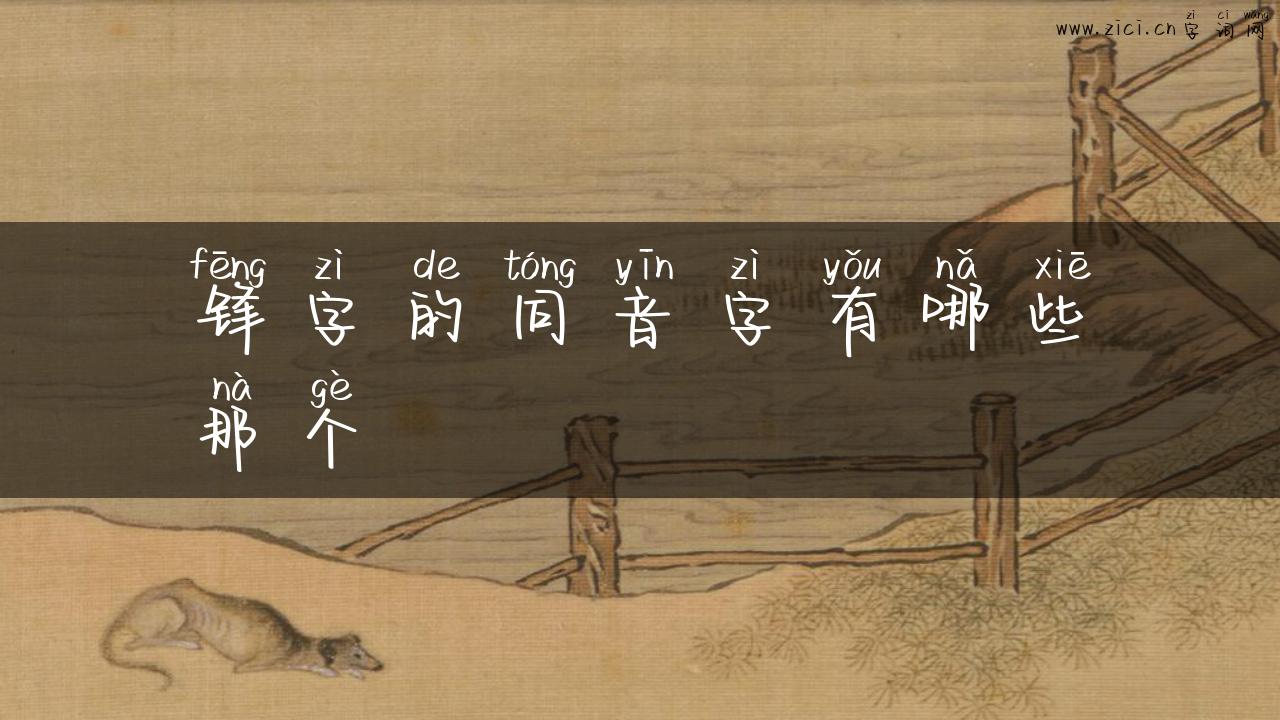 zì cí wǎng
www.zici.cn 字词网
fēng zì de tóng yīn zì yǒu nǎ xiē
锋字的同音字有哪些
nà gè
那个